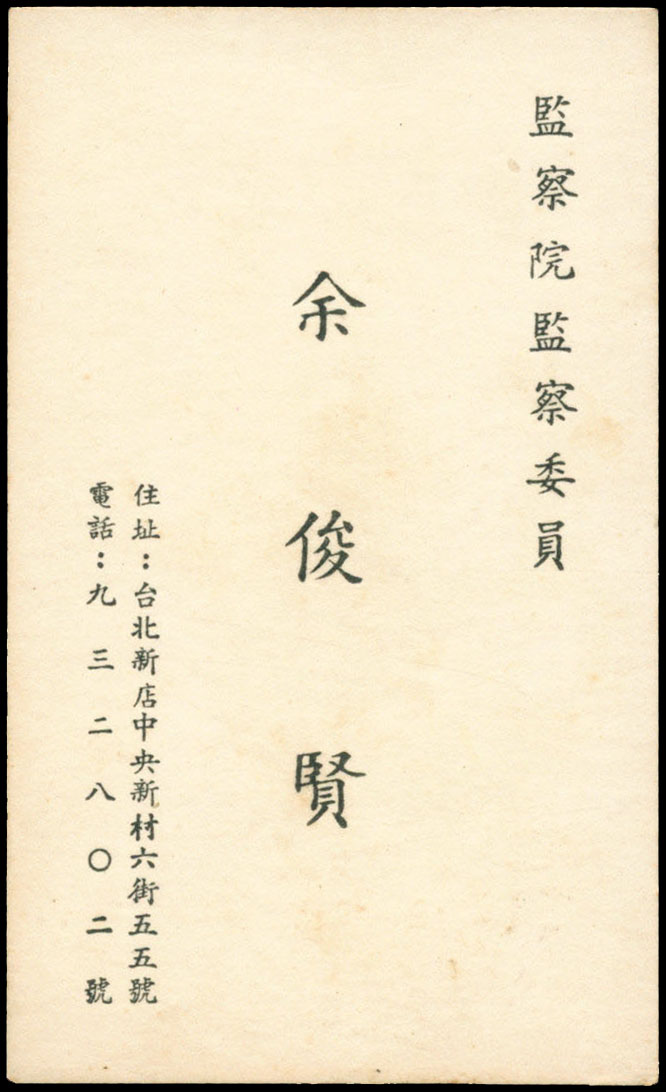 監察院監察委員
余俊賢
住址：台北新店中央新村六街五五號
電話：九三二八〇二號